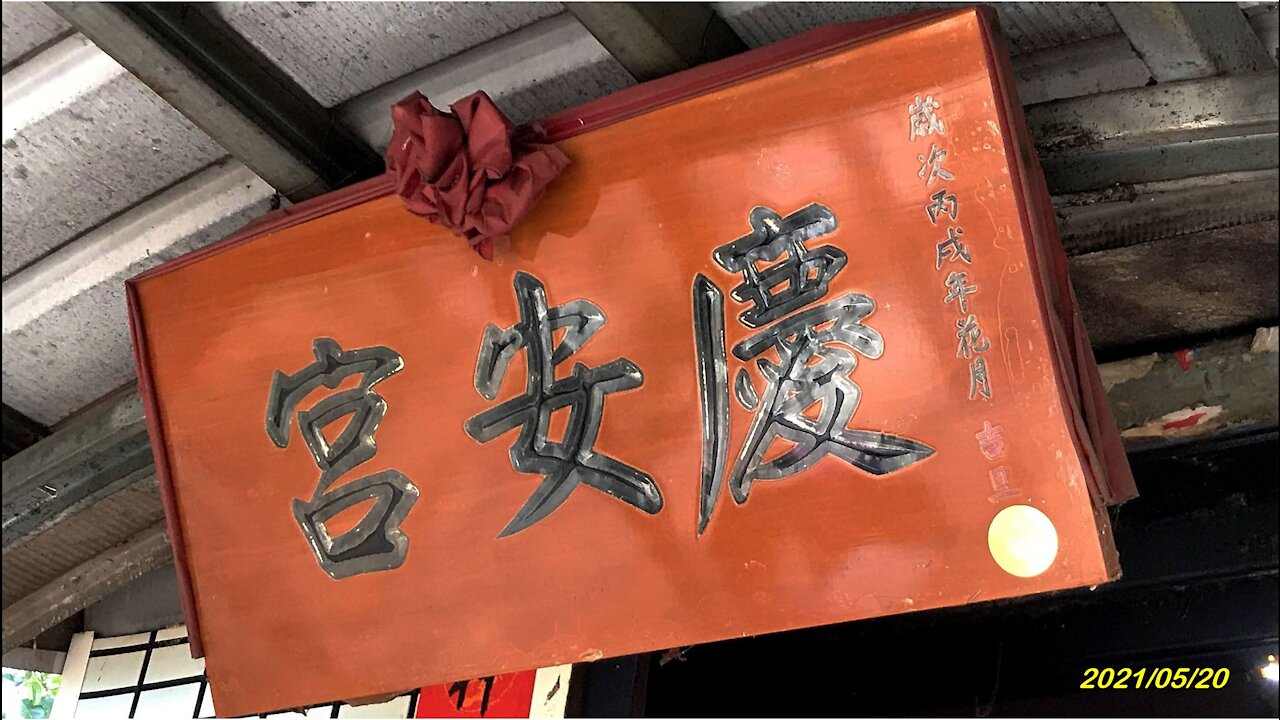 慶安宮
歲次丙戌年花月
吉旦
2021/05/20